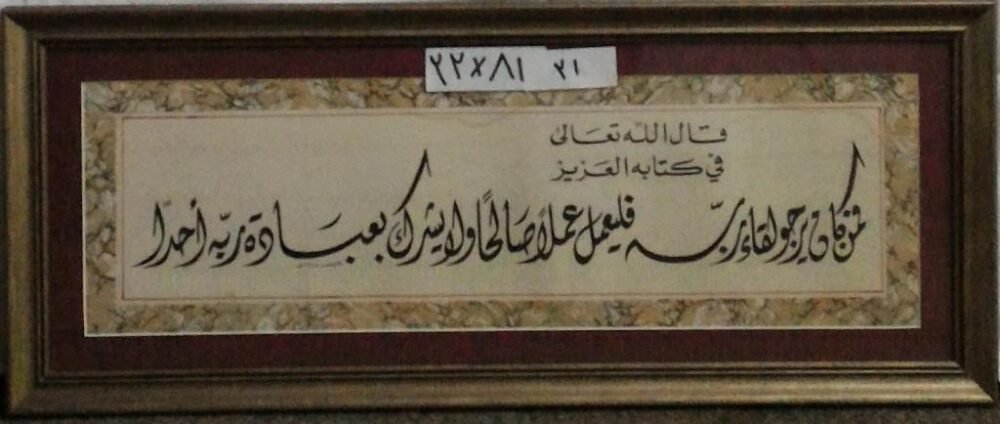 ٢٢×٨١ ٢١
قال الله تعالى
في كتابه العزيز
فمن كان يرجو لقاء ربّه فليعمل عملاً صالحًا ولا يشرك بعبادة ربّه أحدًا